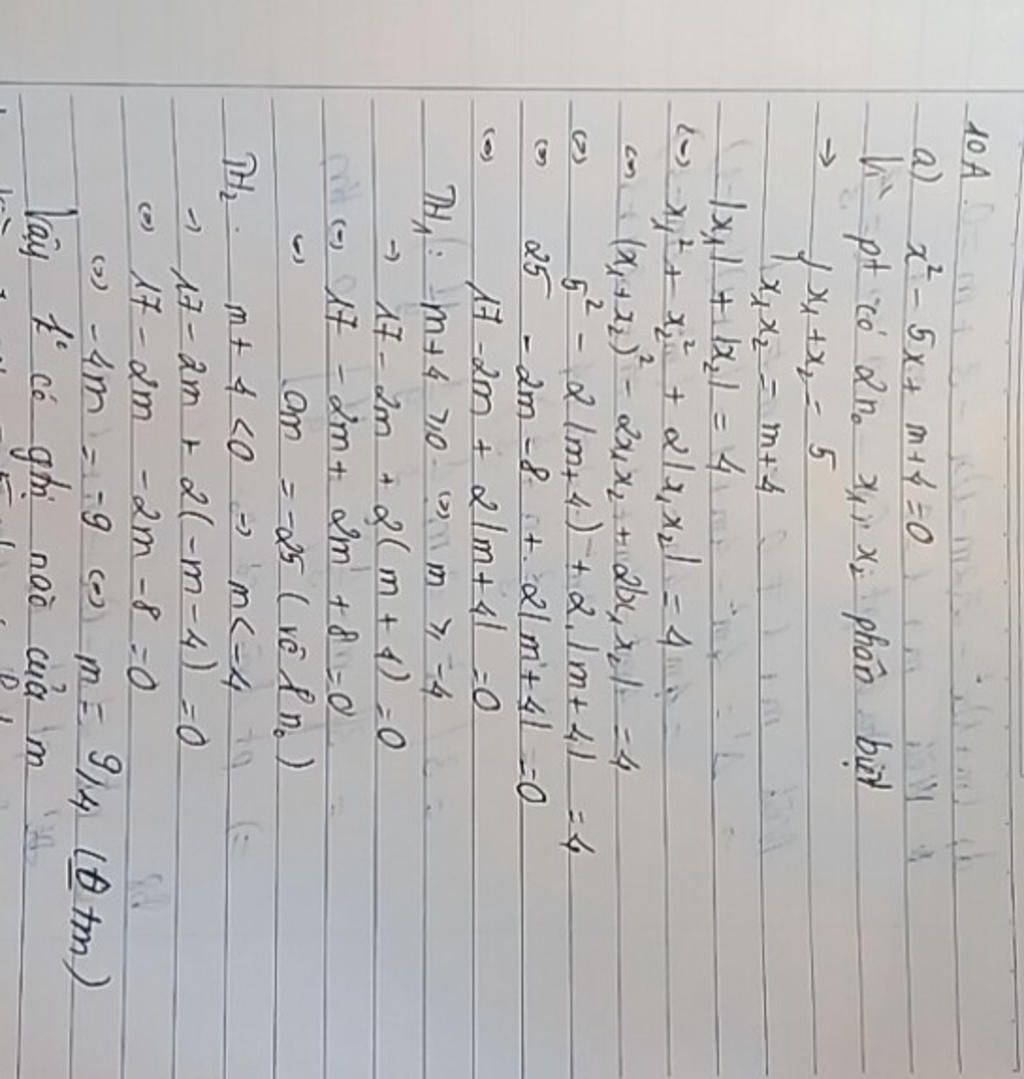 10A.
a) x² - 5x + m+4 = 0
Vì pt có 2 n₀ x₁, x₂ phân biệt
→ { x₁ + x₂ = 5
x₁x₂ = m+4
|x₁| + |x₂| = 4
(=) x₁² + x₂² + 2|x₁x₂| = 4
(=) (x₁+x₂)² - 2x₁x₂ + 2|x₁x₂| = 4
(=) 5² - 2(m+4) + 2.|m+4| = 4
(=) 25 - 2m - 8 + 2|m+4| = 0
(=) 17 - 2m + 2|m+4| = 0
TH₁: m+4 ≥ 0 (=) m ≥ -4
→ 17 - 2m + 2(m+4) = 0
(=) 17 - 2m + 2m + 8 = 0
(=) 0m = -25 (vô n₀)
TH₂. m+4 < 0 → m < -4
→ 17 - 2m + 2(-m-4) = 0
(=) 17 - 2m - 2m - 8 = 0
(=) -4m = -9 (=) m = 9/4 (tm)
Vậy k° có ghị nào của m